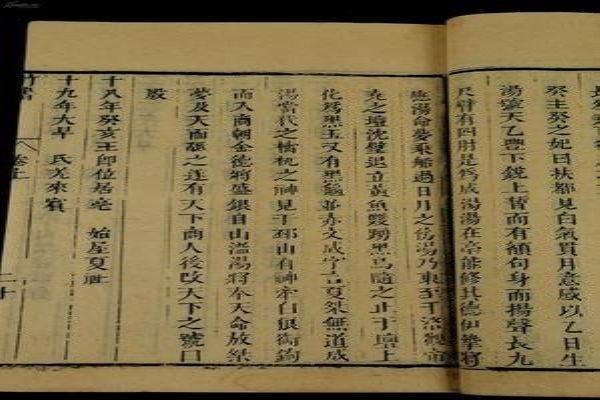 癸主癸之妃曰扶都見白氣貫月意感以乙日生
湯號天乙豐下銳上晳而有髯句身而揚聲長九
尺臂有四肘是爲成湯湯在亳能修其德伊摯將
應湯命夢乘船過日月之傍湯乃東至于洛觀帝
堯之壇沈璧退立黃魚雙踊黑鳥隨之止于壇上
化爲黑玉又有黑龜並赤文成字言夏桀無道成
湯當代之檮杌之神見于邳山有神牽白狼銜鉤
而入商朝金德將盛銀自山溢湯將奉天命放桀
夢及天而舓之遂有天下商人後改天下之號曰
殷
十八年癸亥王即位居亳 始屋夏社
十九年大旱 氐羌來賓
竹書 卷上 二十